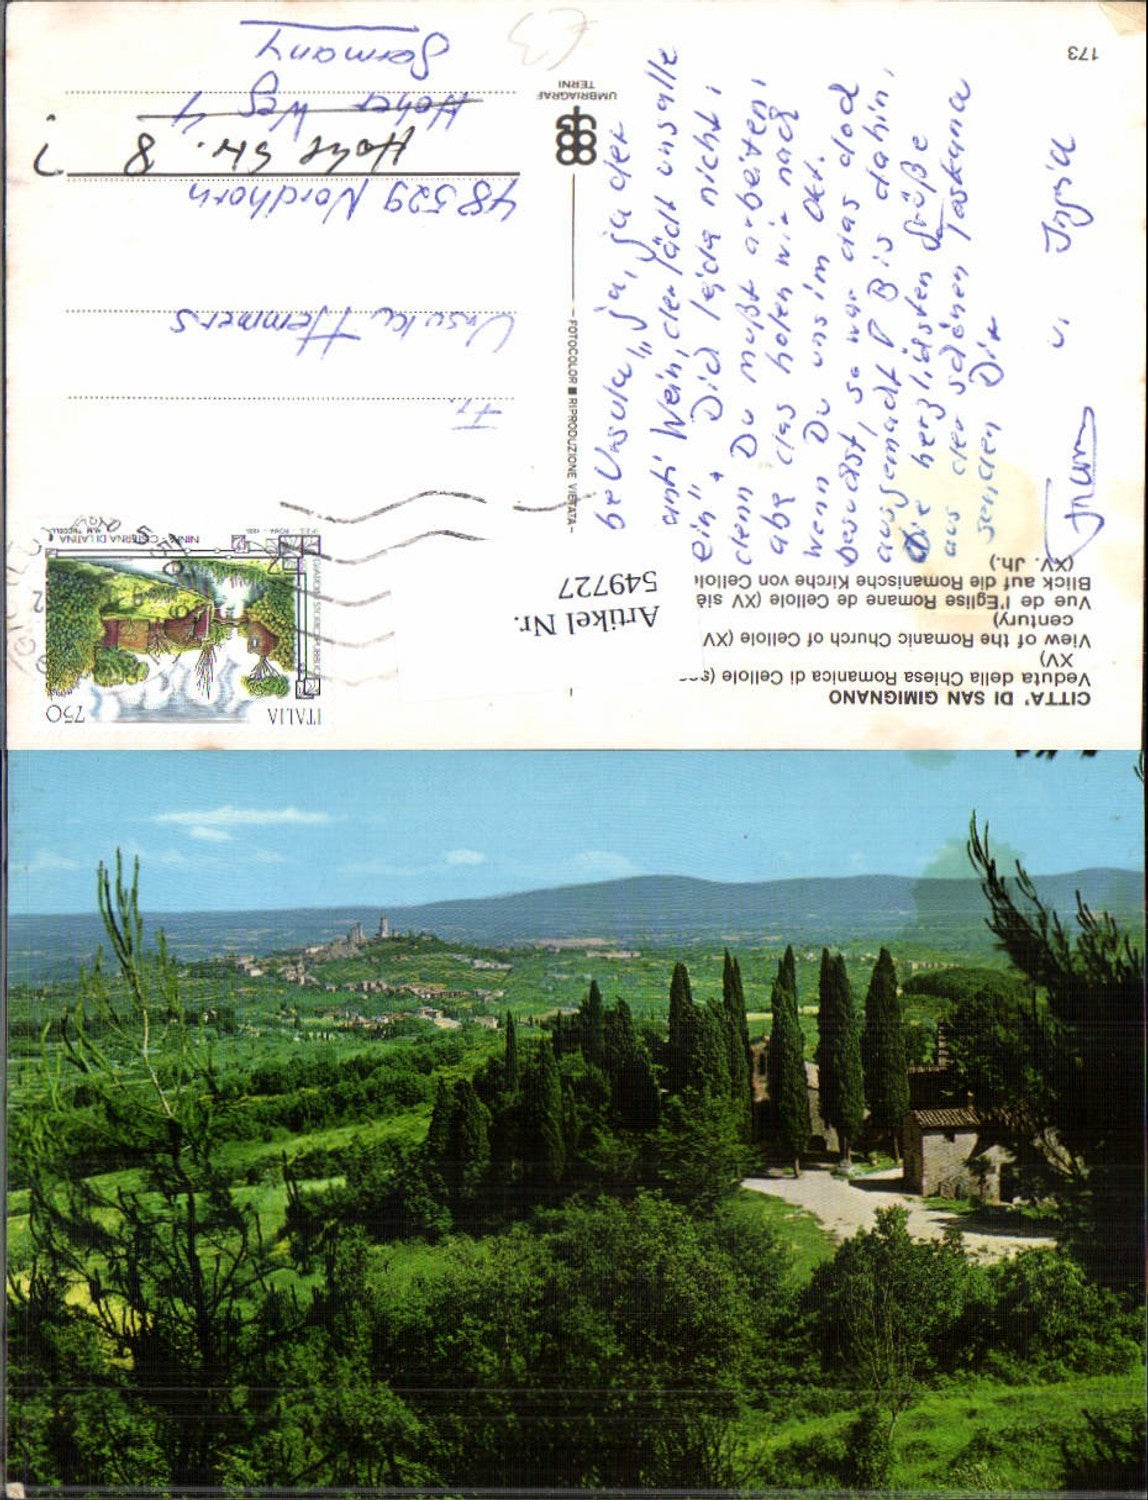 CITTA' DI SAN GIMIGNANO
Veduta della Chiesa Romanica di Cellole (sec.
XV)
View of the Romanic Church of Cellole (XV
century)
Vue de l'Eglise Romane de Cellole (XV siè
Blick auf die Romanische Kirche von Cellole
(XV. Jh.)
be Ursula, "ja, ja der
Wein, der lädt uns alle
ein" + Dich leider nicht;
denn Du mußt arbeiten;
abe das holen wir nach
wenn Du uns im Okt.
besuchst, so war das doch
ausgemacht! Bis dahin,
die herzlichsten Grüße
aus der schönen Toskana
senden Dir
u. Ingrid
173
FOTOCOLOR RIPRODUZIONE VIETATA
UMBRIAGRAF
TERNI
Artikel Nr.
549727
ITALIA
750
NINFA - CISTERNA DI LATINA
Fr.
Ursula Hemmers
48529 Nordhorn
Hohe Str. 8 ?
Hoher Weg 4
Germany